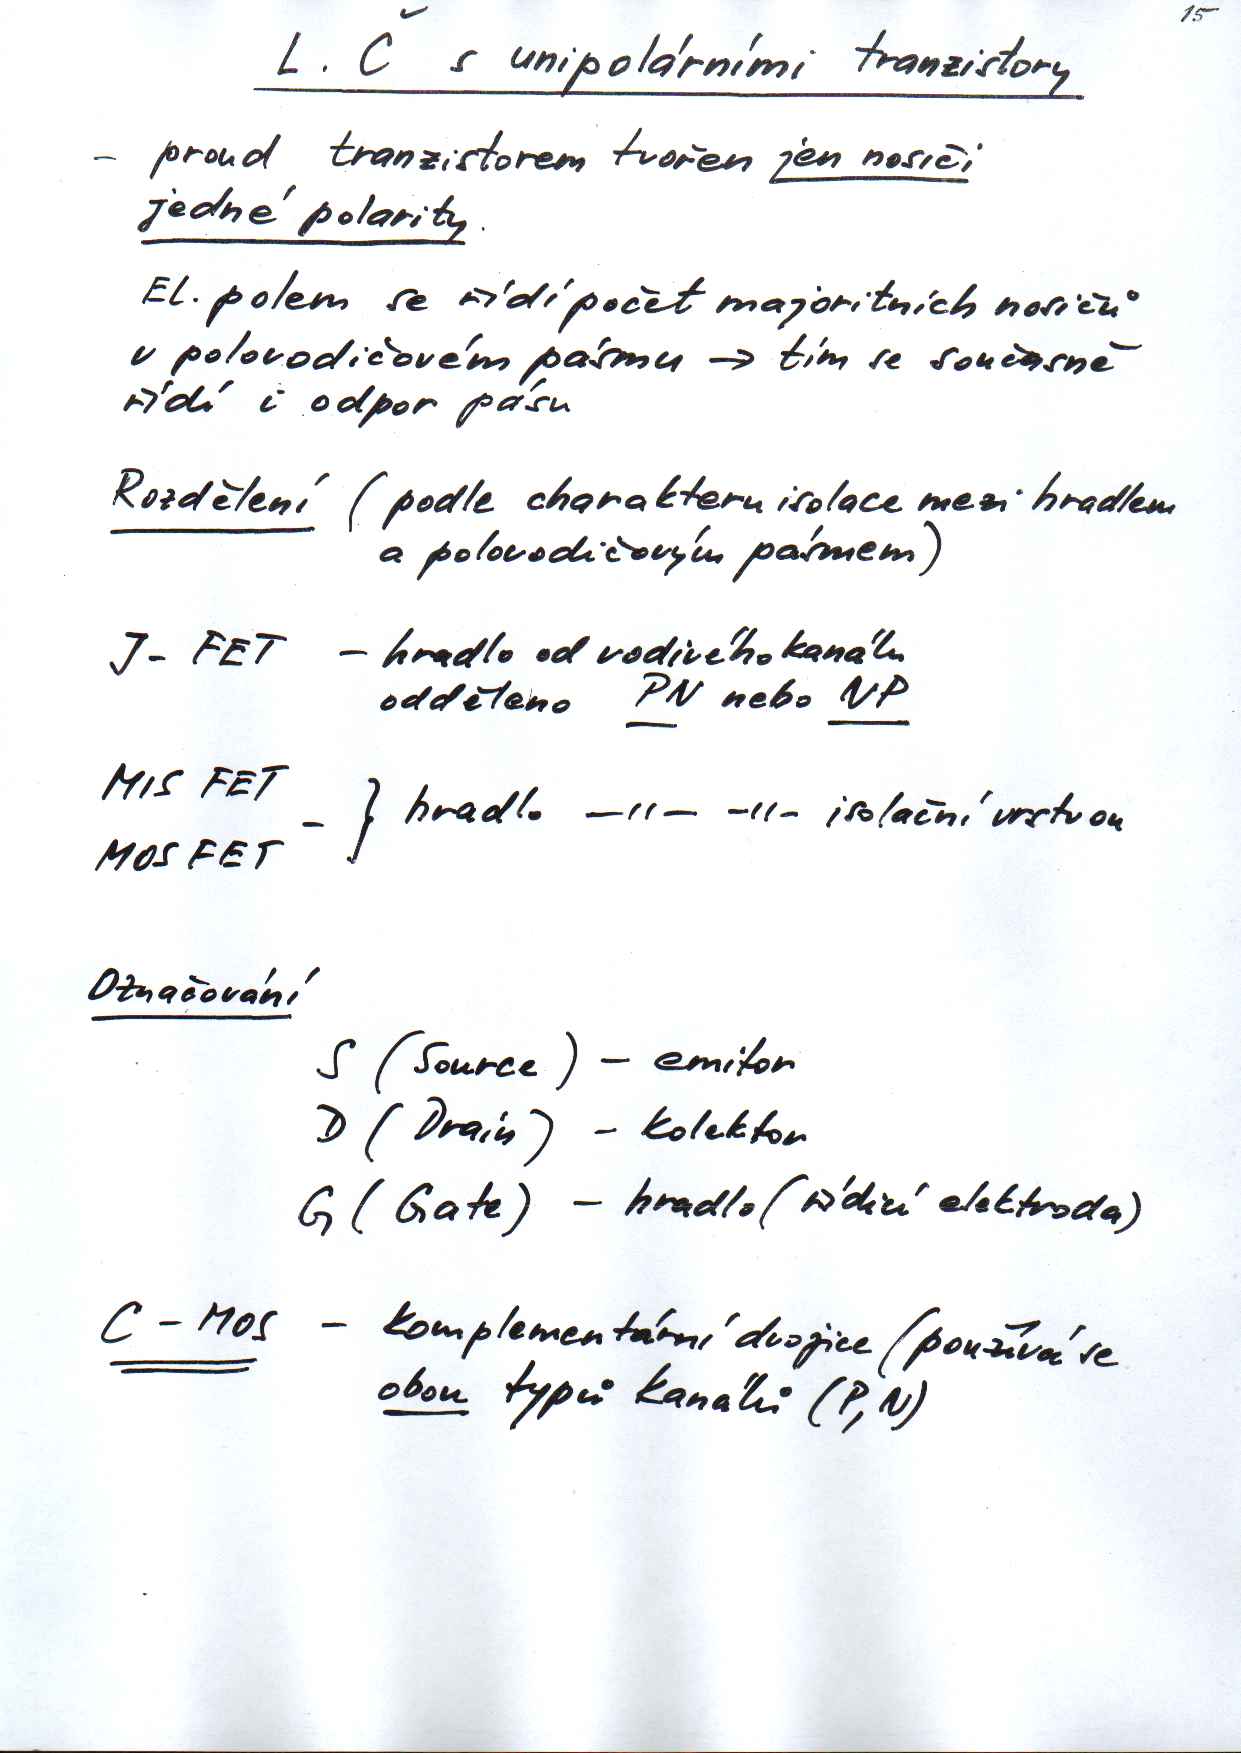 15
L. Č s unipolárními tranzistory
- proud tranzistorem tvořen jen nosiči
jedné polarity.
El. polem se řídí počet majoritních nosičů
v polovodičovém pásmu → tím se současně
řídí i odpor pásu
Rozdělení (podle charakteru isolace mezi hradlem
a polovodičovým pásmem)
J- FET - hradlo od vodivého kanálu
odděleno PN nebo NP
MIS FET
- } hradlo —"— -"- isolační vrstvou
MOS FET
Označování
S (Source) - emitor
D (Drain) - kolektor
G (Gate) - hradlo (řídicí elektroda)
C - MOS - komplementární dvojice (používá se
obou typů kanálů (P,N)